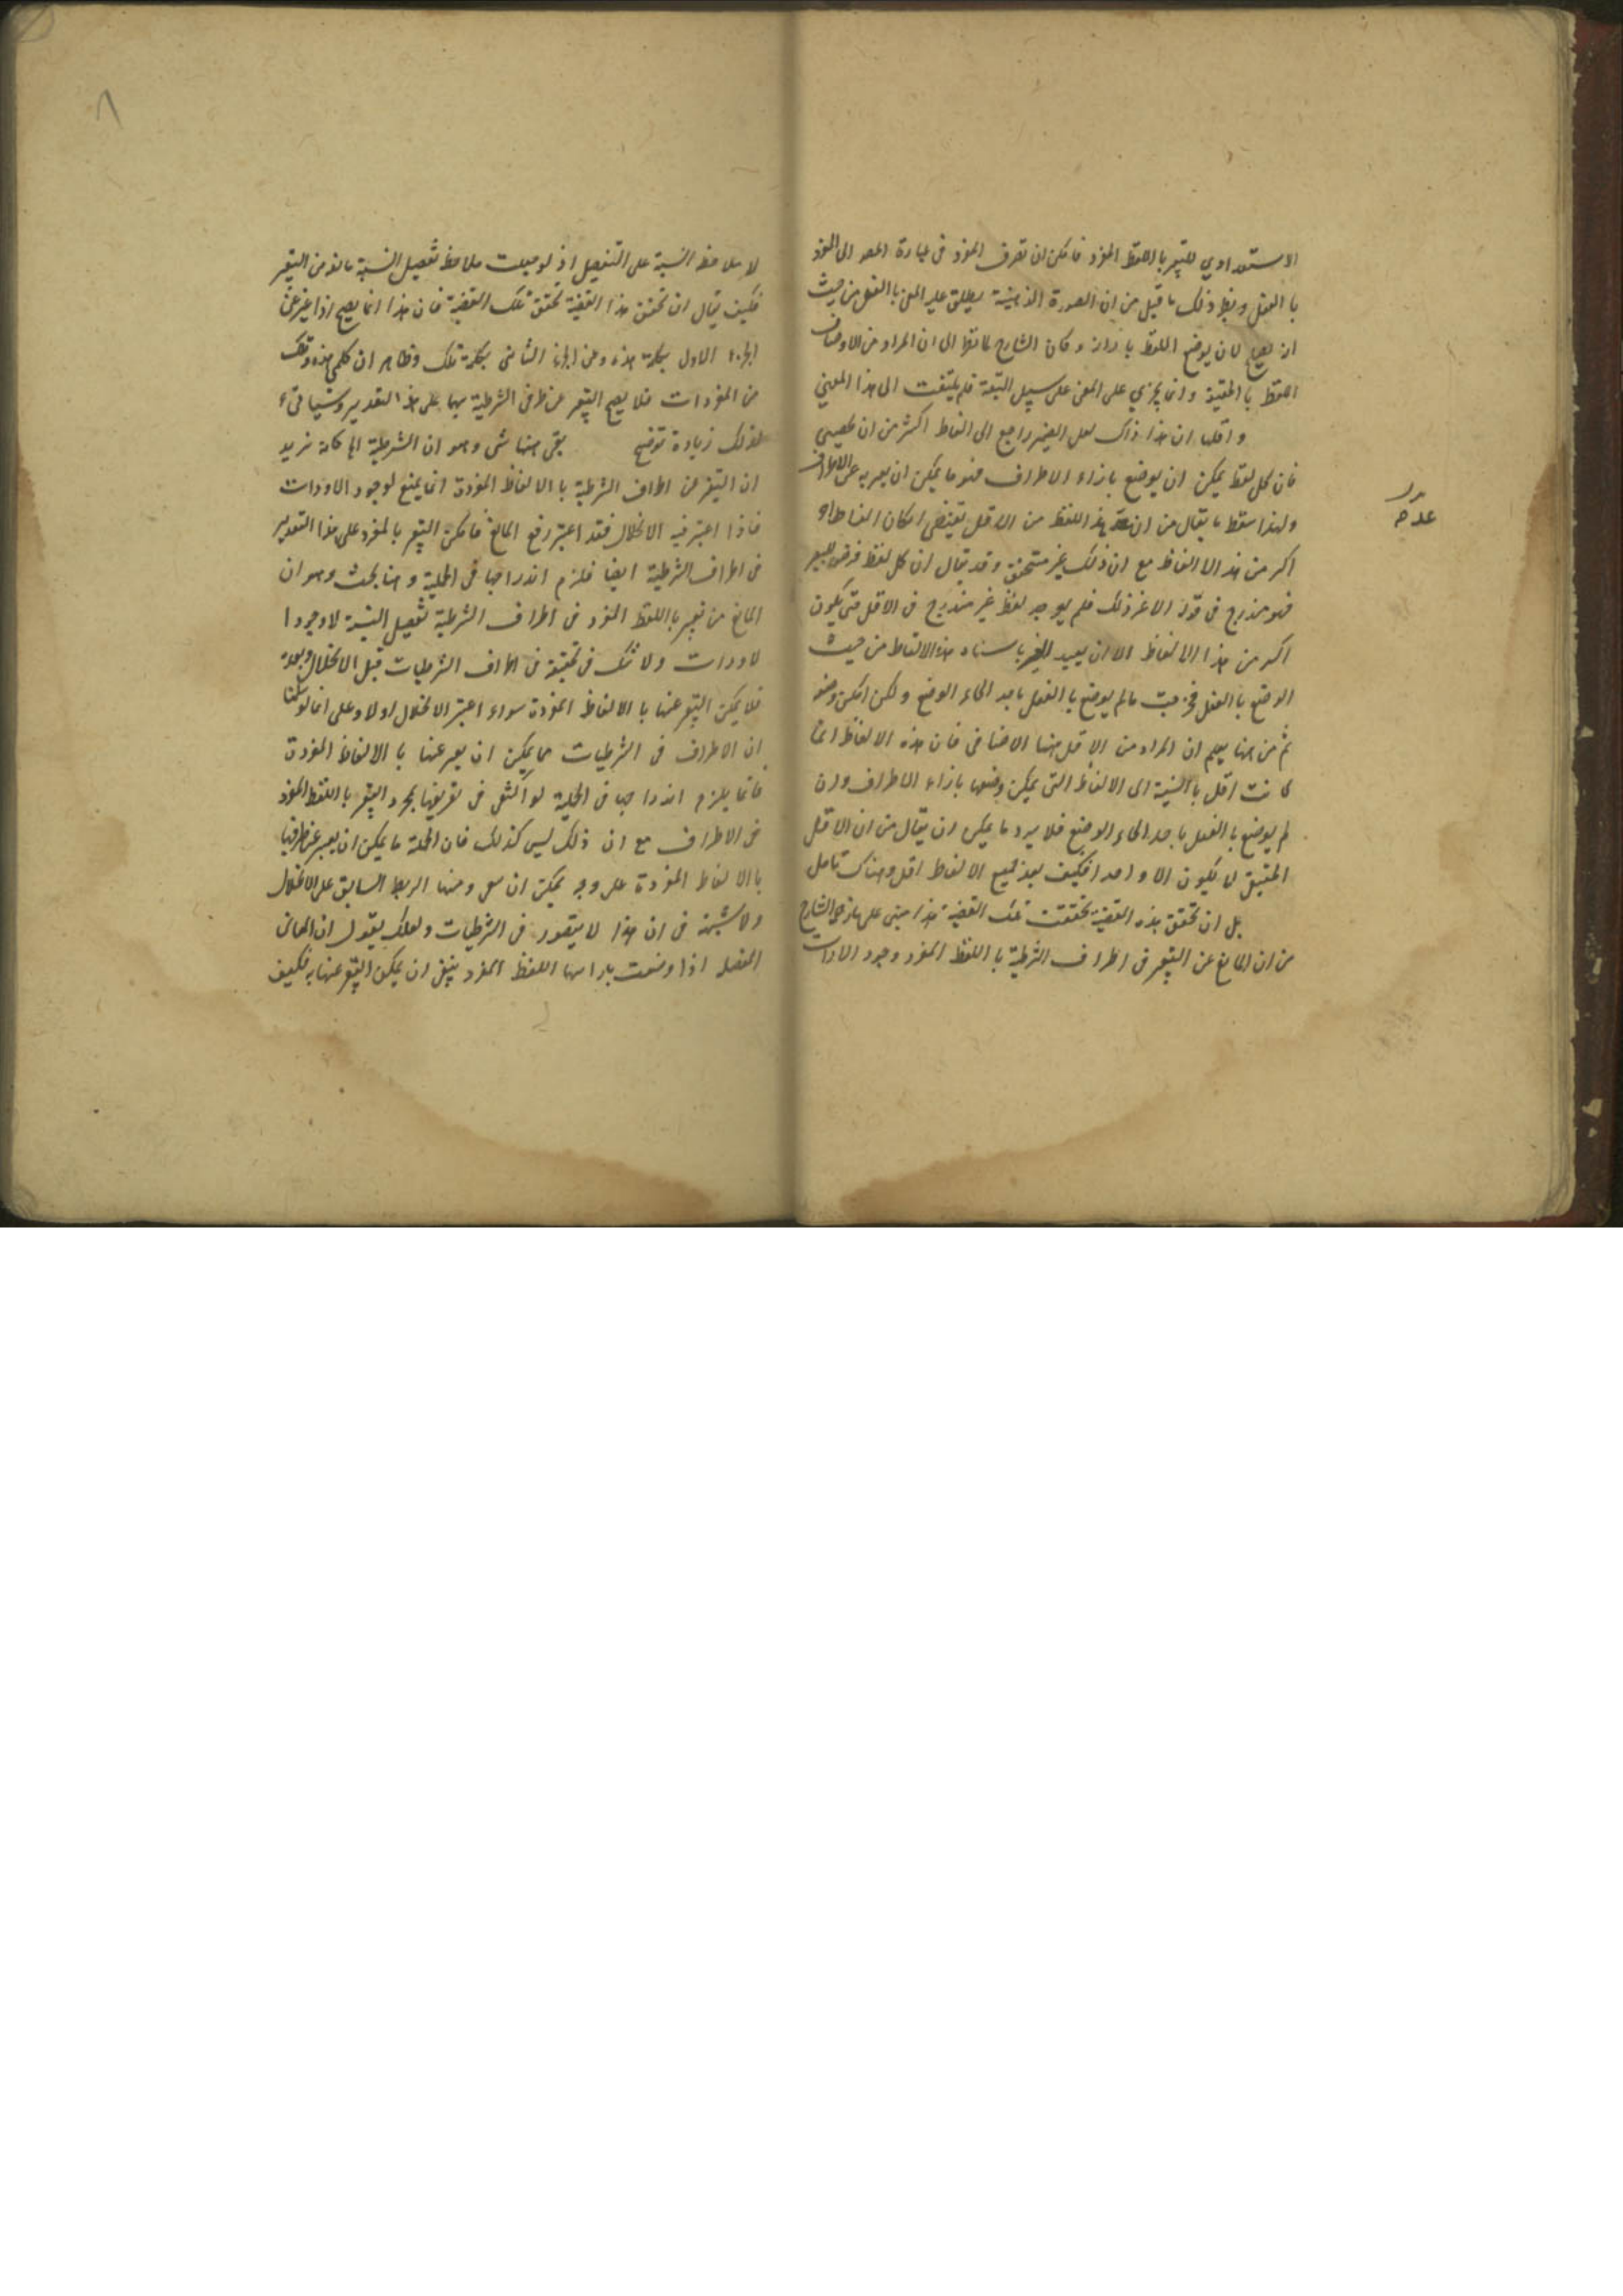 الاستعدادي للتعبير باللفظ المفرد فامكن ان تعرف المفرد في عبارة المصـ الى المفرد
بالفعل ونظير ذلك ما قيل من ان الصورة الذهنية يطلق عليه المعنى بالفعل من حيث
انه يصح لان يوضع اللفظ بازائه وكان الشارح الى ان المراد من الاوصاف
اللفظ بالحقيقة وانما يجري على المعنى على سبيل التبعية فلم يلتفت الى هذا المعنى
واقلها ان هذا ذاك لعل الضمير راجع الى الفاظ اكثر من ان يحصى
فان كل لفظ يمكن ان يوضع بازاء الاطراف فهو ما يمكن ان يعبر به عن الاطراف
ولهذا سقط ما يقال من ان هذا اللفظ من الاقل يقتضي امكان الفاظ او
اكثر من هذا الالفاظ مع ان ذلك غير متحقق وقد يقال ان كل لفظ فرض للتعبير
فهو مندرج في قوله الا غير ذلك فلم يوجد لفظ غير مندرج في الاقل حتى يكون
اكثر من هذا الالفاظ الا ان يعيد الضمير هذه الالفاظ من حيث
الوضع بالفعل ما لم يوضع بالفعل باحد انحاء الوضع ولكن امكن وضعه
ثم من ههنا يعلم ان المراد من الاقل ههنا الاضافي فان هذه الالفاظ انما
كانت اقل بالنسبة الى الالفاظ التي يمكن وضعها بازاء الاطراف وان
لم يوضع بالفعل باحد انحاء الوضع فلا يرد ما يمكن ان يقال من ان الاقل
الحقيقي لا يكون الا واحدا فكيف يعد جميع الالفاظ اقل وهناك تامل
بل ان تحقق هذه القضية تحققت تلك القضية هذا مبني على ما زعم الشارح
من ان المانع عن التعبير في اطراف الشرطية باللفظ المفرد وجود الادات
لا ملاحظة النسبة على التفصيل اذ لو جعلت ملاحظة تفصيل النسبة مانعة من التعبير
فكيف يقال ان تحقق هذا القضية تحقق تلك القضية فان هذا انما يصح اذا عبر عن
الجزء الاول بكلمة هذه وعن الجزء الثاني بكلمة تلك وظاهر ان كلمتي هذه وتلك
من المفردات فلا يصح التعبير عن طرفي الشرطية بهما على هذا التقدير وسيأتي
لذلك زيادة توضيح بقي ههنا شي وهو ان الشرطية
ان التعبير عن اطراف الشرطية بالالفاظ المفردة انما يمنع لوجود الادوات
فاذا اعتبر فيه الانحلال فقد اعتبر رفع المانع فامكن التعبير بالمفرد على هذا التقدير
في اطراف الشرطية ايضا فلزم اندراجها في الحملية وهنا بحث وهو ان
المانع من تعبير باللفظ المفرد في اطراف الشرطية تفصيل النسبة لا وجود ا
لادوات ولا شك في تحققه في اطراف الشرطيات قبل الانحلال وبعده
فلا يمكن التعبير عنها بالالفاظ المفردة سواء اعتبر الانحلال او لا وعلى انا لو سلمنا
ان الاطراف في الشرطيات مما يمكن ان يعبر عنها بالالفاظ المفردة
فانما يلزم اندراجها في الحملية لو اكتفى في تعريفها بمجرد التعبير باللفظ المفرد
في الاطراف مع ان ذلك ليس كذلك فان الحملية ما يمكن ان يعبر عن طرفيها
بالالفاظ المفردة على وجه يمكن ان الربط السابق على الانحلال
ولا شبهة في ان هذا لا يتصور في الشرطيات ولعلك يقول ان المعاني
المفصلة اذا وضعت بازائها اللفظ المفرد ينبغي ان يمكن التعبير عنها به فكيف